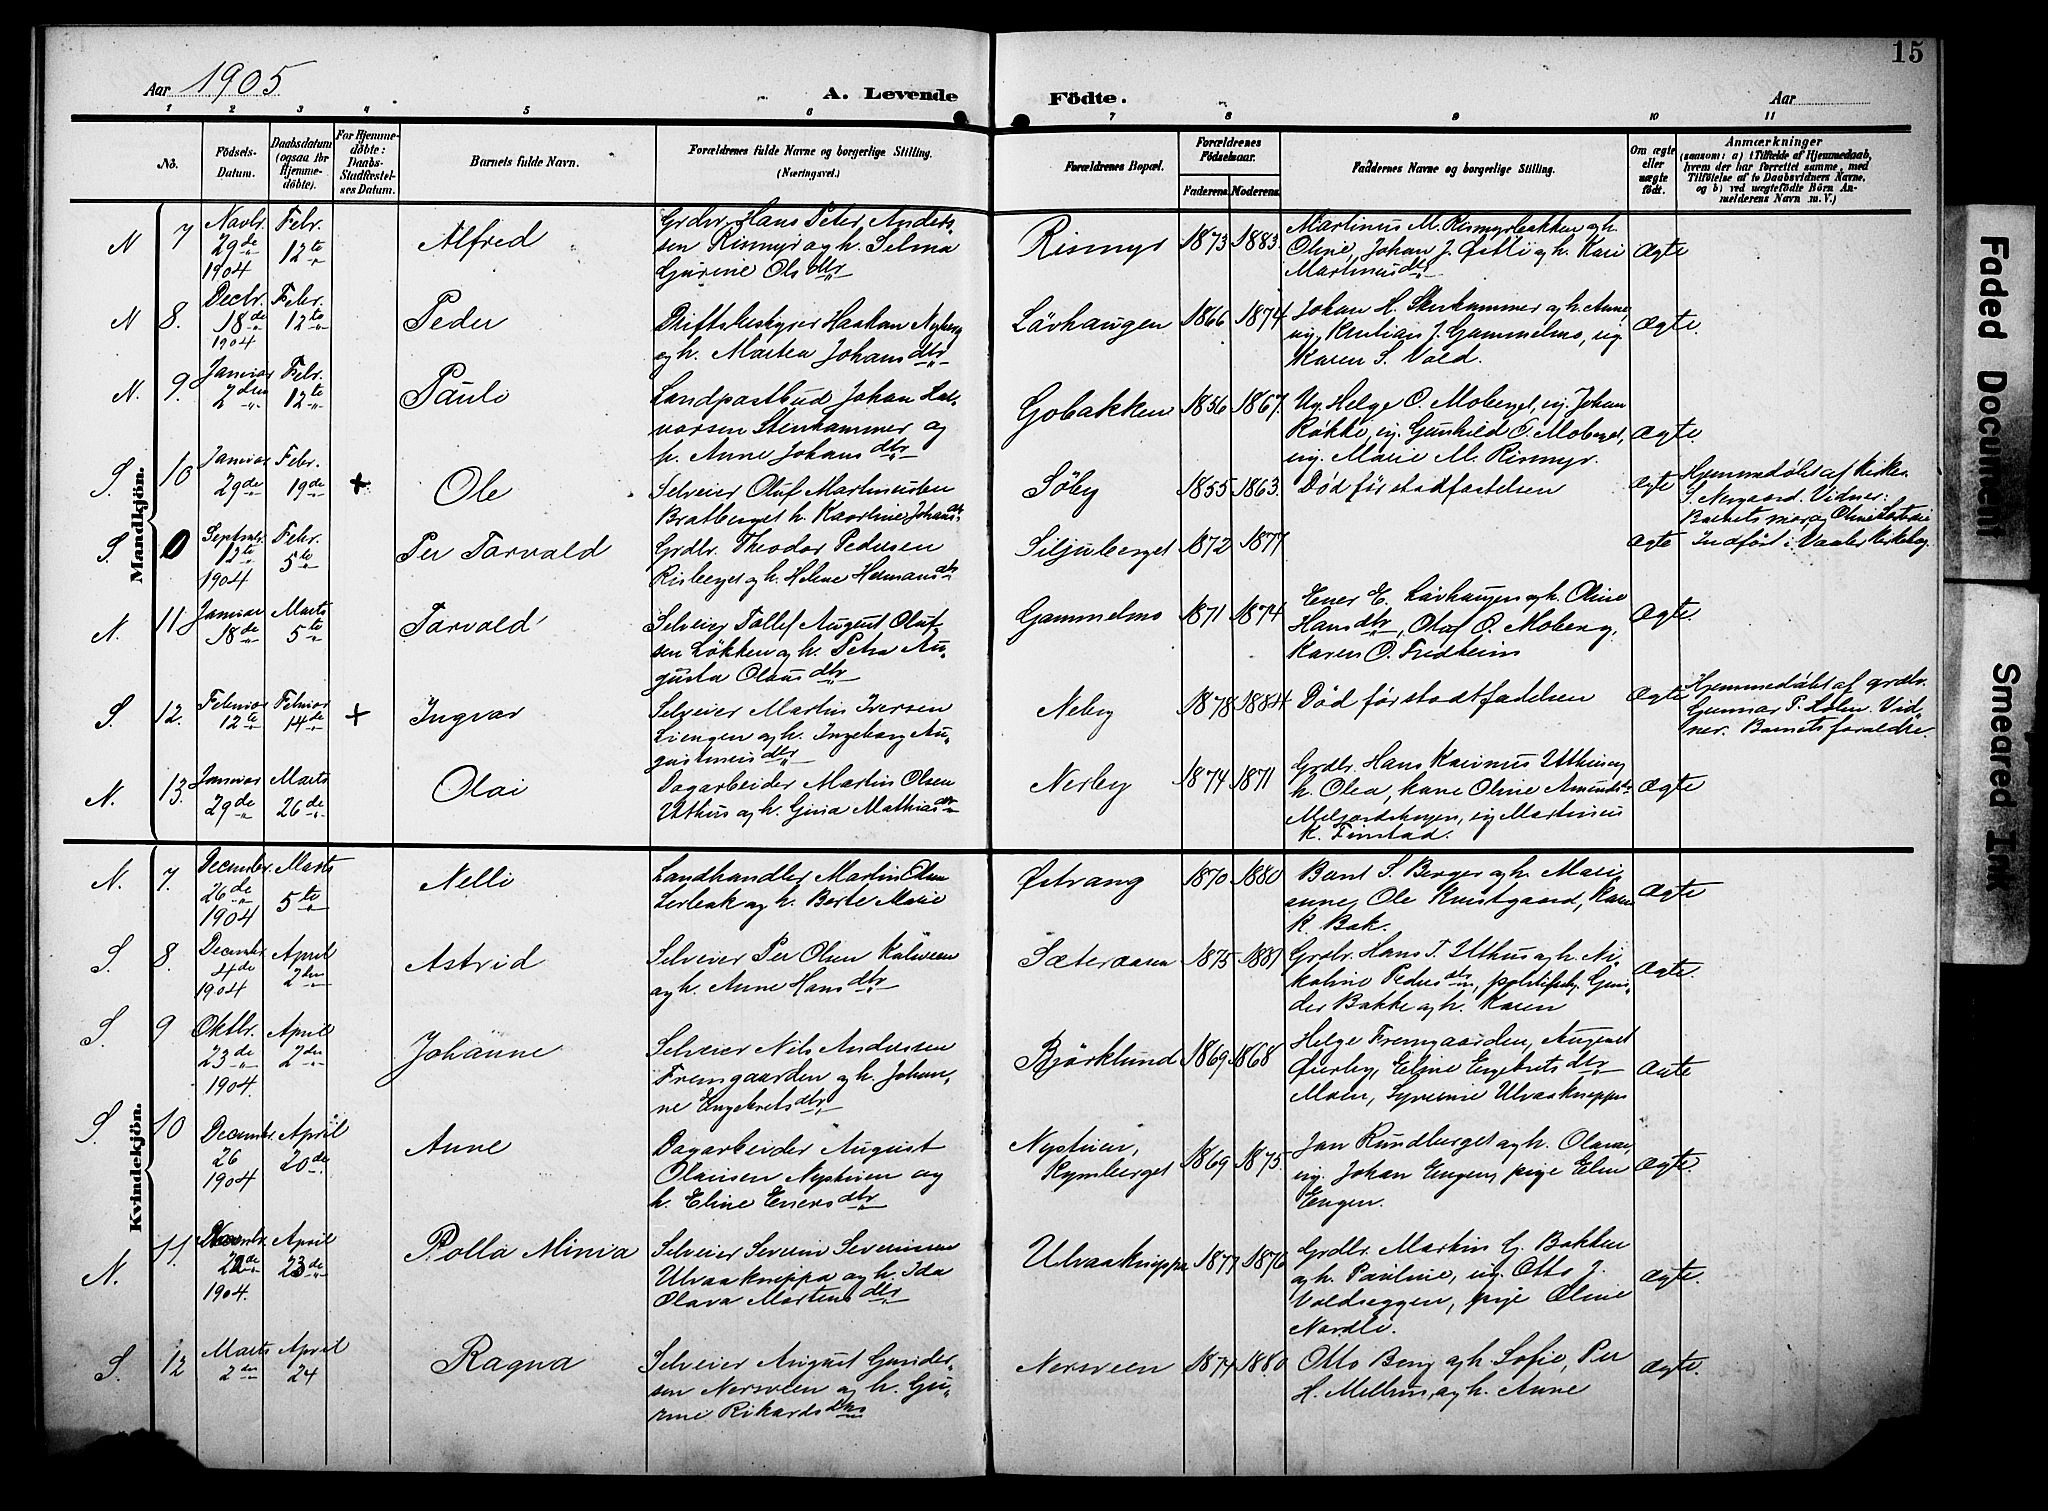 15
Aar 1905.
A. Levende
Födte.
Aar
1 2 3 4 5 6 7 8 9 10 11
No.
Födsels-
Datum.
Daabsdatum
(ogsaa for
Hjemme-
döbte).
For Hjemme-
döbte:
Daabs-
Stadfæstel-
ses Datum.
Barnets fulde Navn.
Forældrenes fulde Navne og borgerlige Stilling.
(Næringsvei.)
Forældrenes Bopæl.
Forældrenes
Födselsaar.
Faderens. Moderens.
Faddernes Navne og borgerlige Stilling.
Om ægte
eller
uægte
födt.
Anmærkninger
(saasom: a) i Tilfælde af Hjemmedaab,
hvem der har forrettet samme, med
Tilföielse af to Daabsvidners Navne,
og b) ved uægtefödte Börn An-
melderens Navn m. V.)
Mandkjön.
N 7 Novbr. 29de 1904 Febr. 12te Alfred
Grdbr. Hans Peter Anders-
sen Rismyr og h. Selma
Gurine Olsdtr
Rismyr 1873 1883
Martinus M. Rismyrbakken og h.
Oline, Johan J. Østli og h. Kari
Martinusdtr
Ægte
N 8. Decbr. 18de 1904 Febr. 12te Peder
Driftsbestyrer Haakon Nyberg
og h. Martea Johansdtr
Lövhaugen 1866 1874
Johan H. Stenhammer og h. Anne,
ug. Kristian J. Gammelmo, ug.
Karen S. Vold.
Ægte.
N. 9. Januar 2den Febr. 12te Pauli
Landpostbud Johan Hal-
vorsen Stenhammer og
h. Anne Johansdtr
Gobakken 1856 1867.
Ug. Helge O. Moberget, ug. Johan
Røkke, ug. Gunhild O. Moberget,
ug. Marie M. Rismyr.
Ægte
S. 10 Januar 29de Febr. 19de + Ole
Selveier Oluf Martinussen
Bratberget h. Karoline Johansdtr
Söby 1855 1863.
Død før stadfæstelsen
Ægte
Hjemmedøbt af Kirkes.
S. Nergaard. Vidner:
Barnets mor og Oline
S. 0 Septbr. 12te 1904 Febr. 5te Per Torvald
Grdbr. Theodor Pedersen
Risberget og h. Helene Hermansdtr
Siljuberget 1872 1877
Ægte
Indført i Vaaler Kirkebog.
N. 11. Januar 18de Marts 5te Torvald
Selveier Tollef August Oluf-
sen Løkken og h. Petra Au-
gusta Olausdtr
Gammelmo 1871 1874
Ener E. Løvhaugen og h. Oline
Hansdtr, Oluf O. Moberg,
Karen O. Fredheim
Ægte.
S. 12. Februar 12te Februar 14de + Ingvar
Selveier Martin Iversen
Liengen og h. Ingeborg Au-
gustinusdtr
Neby 1878 1884
Død før stadfæstelsen
Ægte
Hjemmedøbt af grdbr.
Gunnar T. Holen. Vid-
ner: Barnets forældre.
N. 13. Januar 29de Marts 26de Olai
Dagarbeider Martin Olsen
Utthus og h. Gina Mathiasdtr
Nerby 1874 1871
Grdbr. Hans Karinus Utthus og
h. Olea, kone Oline Amundsdtr
Melgardskogen, ug. Martinus
K. Finstad.
Ægte
Kvindekjön.
N. 7. December 26de 1904 Marts 5te Nelli
Landhandler Martin Olsen
Lerbak og h. Berte Marie
Østvang 1870 1880
Bernt S. Berger og h. Mari-
anne, Ole Kvistgaard, Karen
K. Bak.
Ægte
S. 8. December 4de 1904 April 2den Astrid
Selveier Per Olsen Kølveen
og h. Anne Hansdtr
Sæteraasen 1875 1881
Grdbr. Hans T. Utthus og h. Ni-
koline Pedersdtr, politibetj. Gun-
der Bakke og h. Karen
Ægte.
S. 9 Oktbr. 23de 1904 April 2den Johanne
Selveier Nils Andersen
Fremgaarden og h. Johan-
ne Engebretsdtr
Bjørklund 1869 1868
Helge Fremgaarden, August
Øierby, Eline Engebretsdtr
Moen, Syverine Ulvaakneppe
Ægte
S. 10 December 26 1904 April 20de Anne
Dagarbeider August
Olausen Nystuen og
h. Eline Enersdtr
Nystuen,
Kynberget 1869 1875.
Jan Rundberget og h. Olava,
ug. Johan Engen, pige Elen
Engen.
Ægte.
N. 11. 22de 1904. April 23de Polla Minia
Selveier Severin Severinsen
Ulvaakneppa og h. Ida
Olava Martensdtr
Ulvaakneppe 1877 1876
Grdbr. Martin G. Bakken
og h. Pauline, ug. Otto J.
Voldseggen, pige Oline
Nordli.
Ægte.
S. 12 Marts 2den April 24 Ragna
Selveier August Gunder-
sen Nersveen og h. Gu-
rine Rikardsdtr
Nersveen 1874 1880
Otto Berg og h. Sofie, Per
H. Mellum, og h. Anne
Ægte.
Faded Document
Smeared Ink